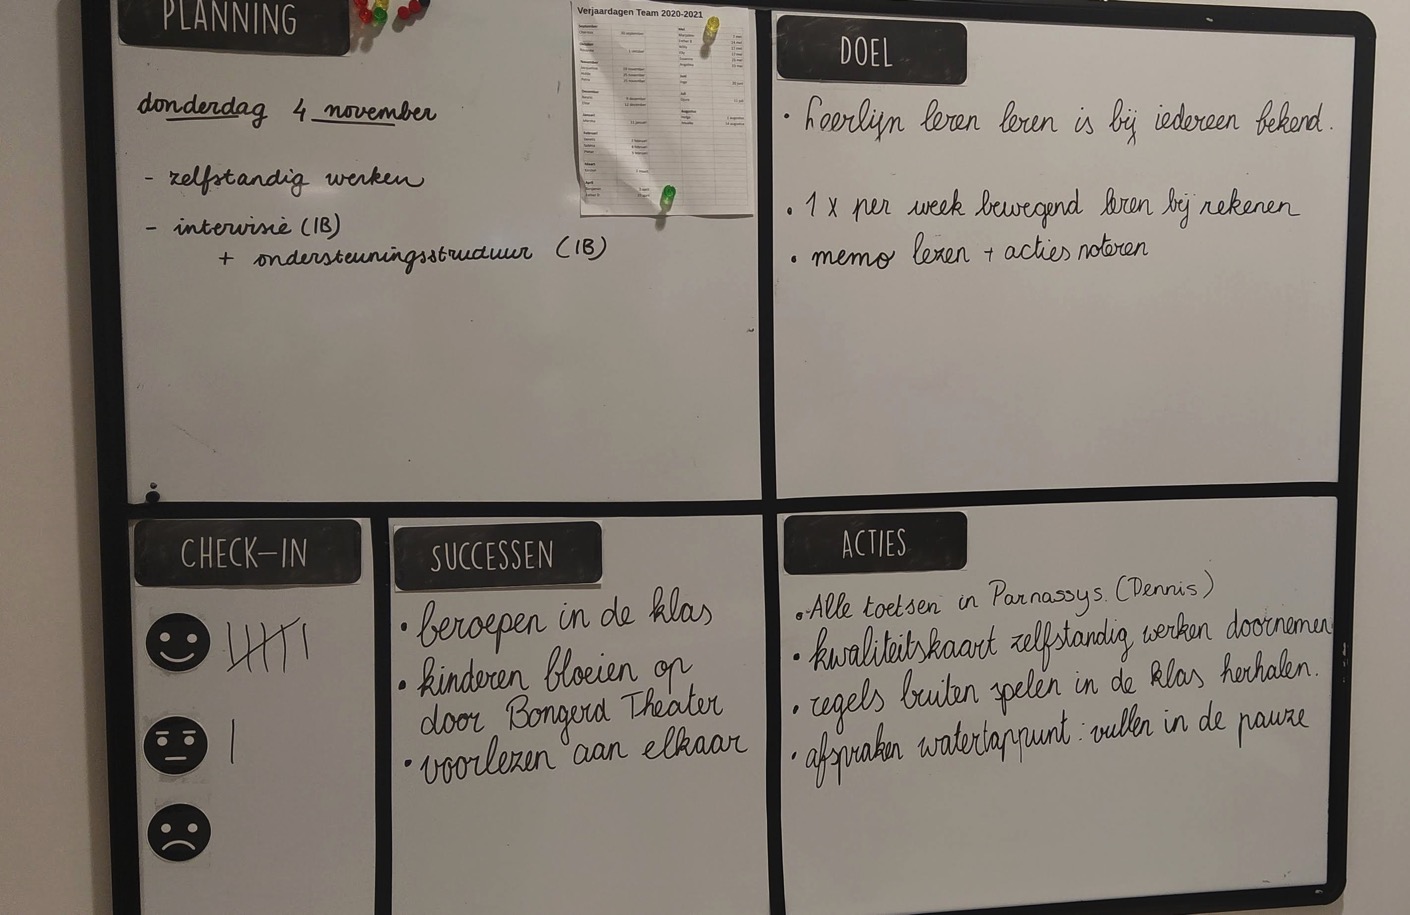 PLANNING
donderdag 4 november
- zelfstandig werken
- intervisie (IB)
+ ondersteuningsstructuur (IB)
Verjaardagen Team 2020-2021
DOEL
• leerlijn leren leren is bij iedereen bekend.
• 1 x per week bewegend leren bij rekenen
• memo lezen + acties noteren
CHECK-IN
SUCCESSEN
• beroepen in de klas
• kinderen bloeien op
door Bongerd Theater
• voorlezen aan elkaar
ACTIES
• Alle toetsen in Parnassys. (Dennis)
• kwaliteitskaart zelfstandig werken doornemen
• regels buiten spelen in de klas herhalen.
• afspraken watertappunt: vullen in de pauze